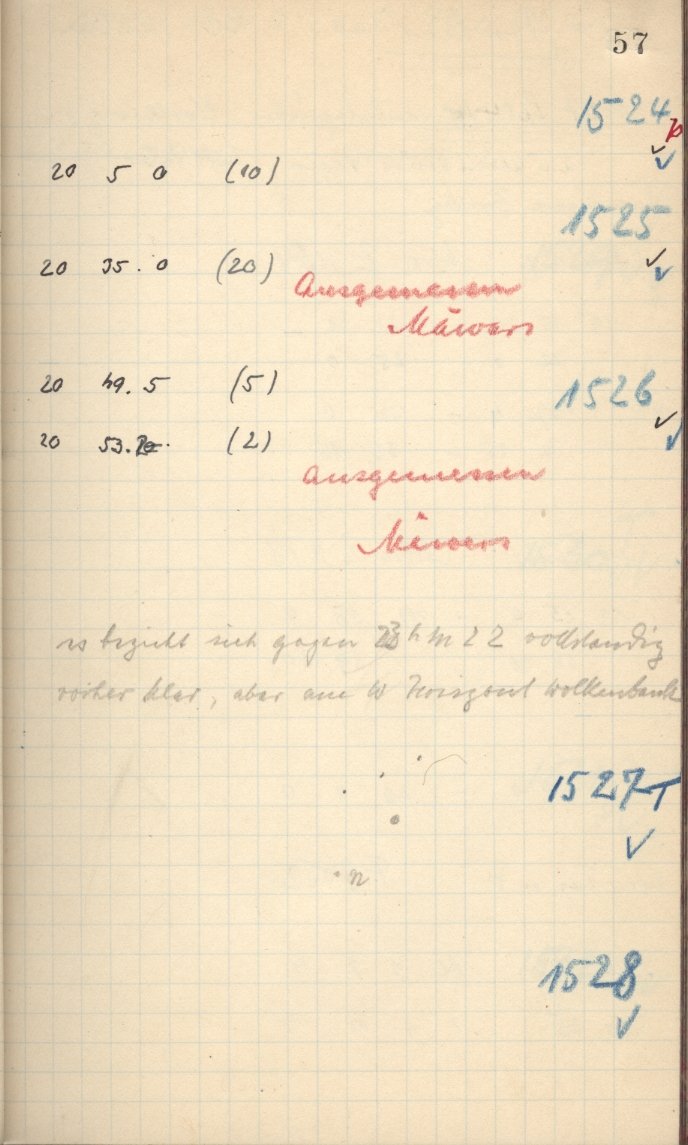 57
1524
20 5 0 (10)
1525
20 35. 0 (20)
Ausgemessen
Mewers
20 49. 5 (5)
1526
20 53. (2)
Ausgemessen
Mewers
es bezieht sich gegen h m 22 vollständig
vorher klar, aber am W Horizont Wolkenbank
1527 T
n
1528